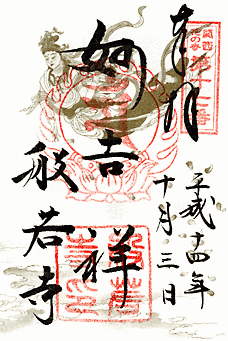 関西
花の寺
第十七番
奉拝
平成十四年
十月三日
妙吉祥
般若寺